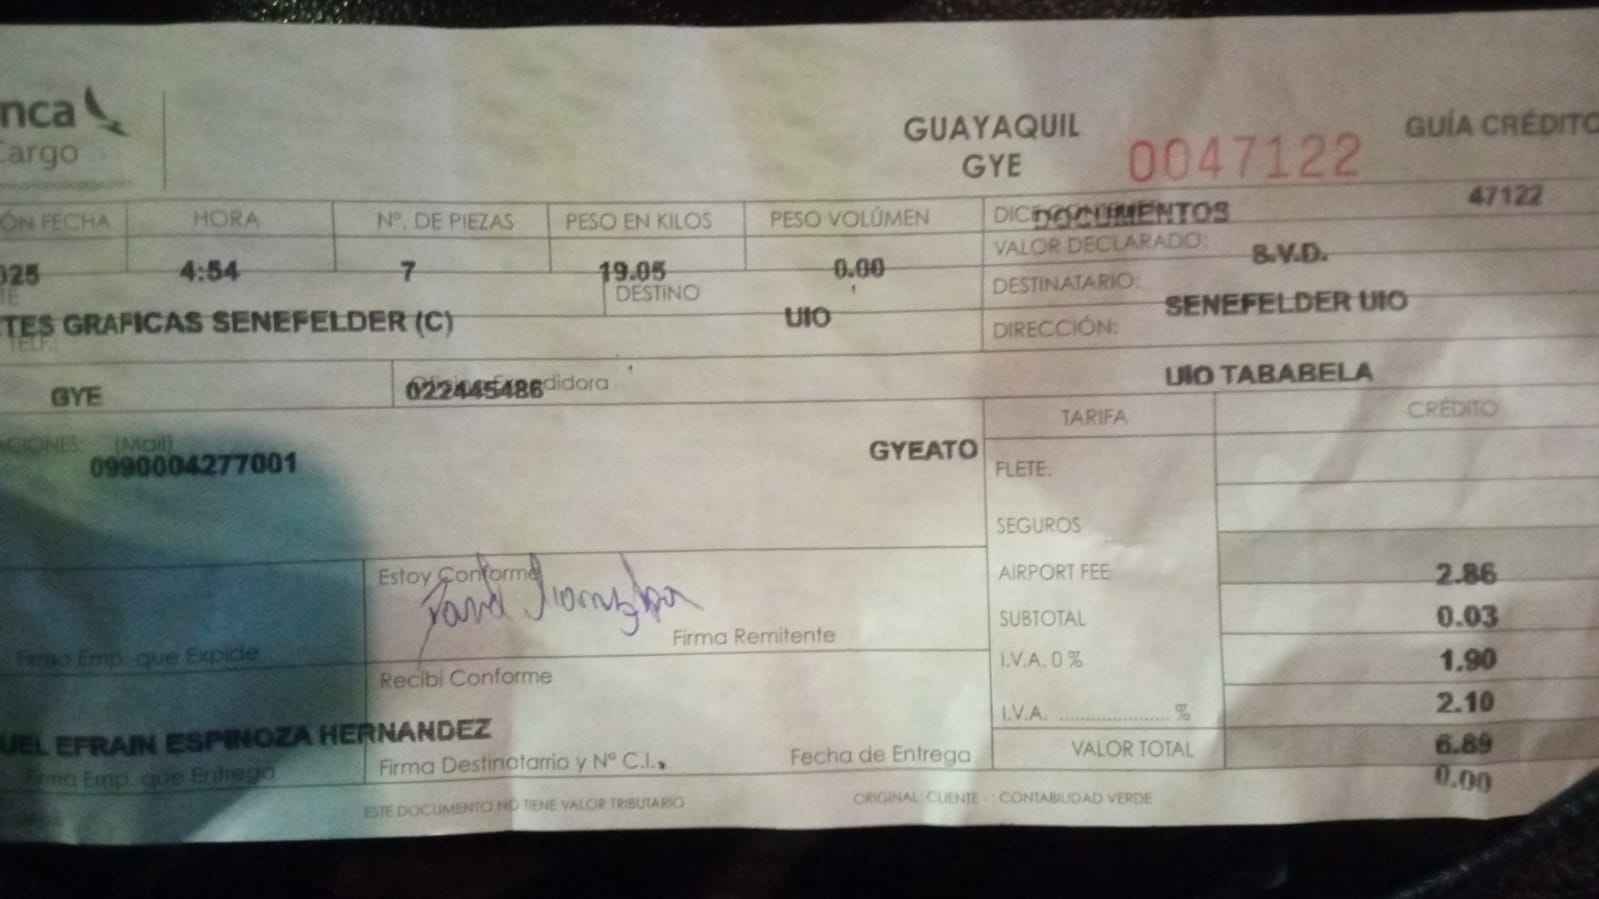 nca
Cargo
GUAYAQUIL
GYE
0047122
GUÍA CRÉDITO
47122
ÓN FECHA HORA Nº. DE PIEZAS PESO EN KILOS PESO VOLÚMEN DICE DOCUMENTOS
025 4:54 7 19.05 0.00 VALOR DECLARADO: S.V.D.
TES GRAFICAS SENEFELDER (C) DESTINO UIO DESTINATARIO: SENEFELDER UIO
TELF.: DIRECCIÓN:
UIO TABABELA
GYE 022445486 didora
CIONES: (Mail) TARIFA CRÉDITO
0990004277001 GYEATO FLETE:
SEGUROS
Estoy Conforme AIRPORT FEE 2.86
SUBTOTAL 0.03
Firma Emp. que Expide Firma Remitente I.V.A. 0 % 1.90
Recibi Conforme I.V.A. % 2.10
UEL EFRAIN ESPINOZA HERNANDEZ VALOR TOTAL 6.89
Firma Emp. que Entrega Firma Destinotarrio y Nº C.I. Fecha de Entrega 0.00
ESTE DOCUMENTO NO TIENE VALOR TRIBUTARIO ORIGINAL: CLIENTE - : CONTABILIDAD VERDE